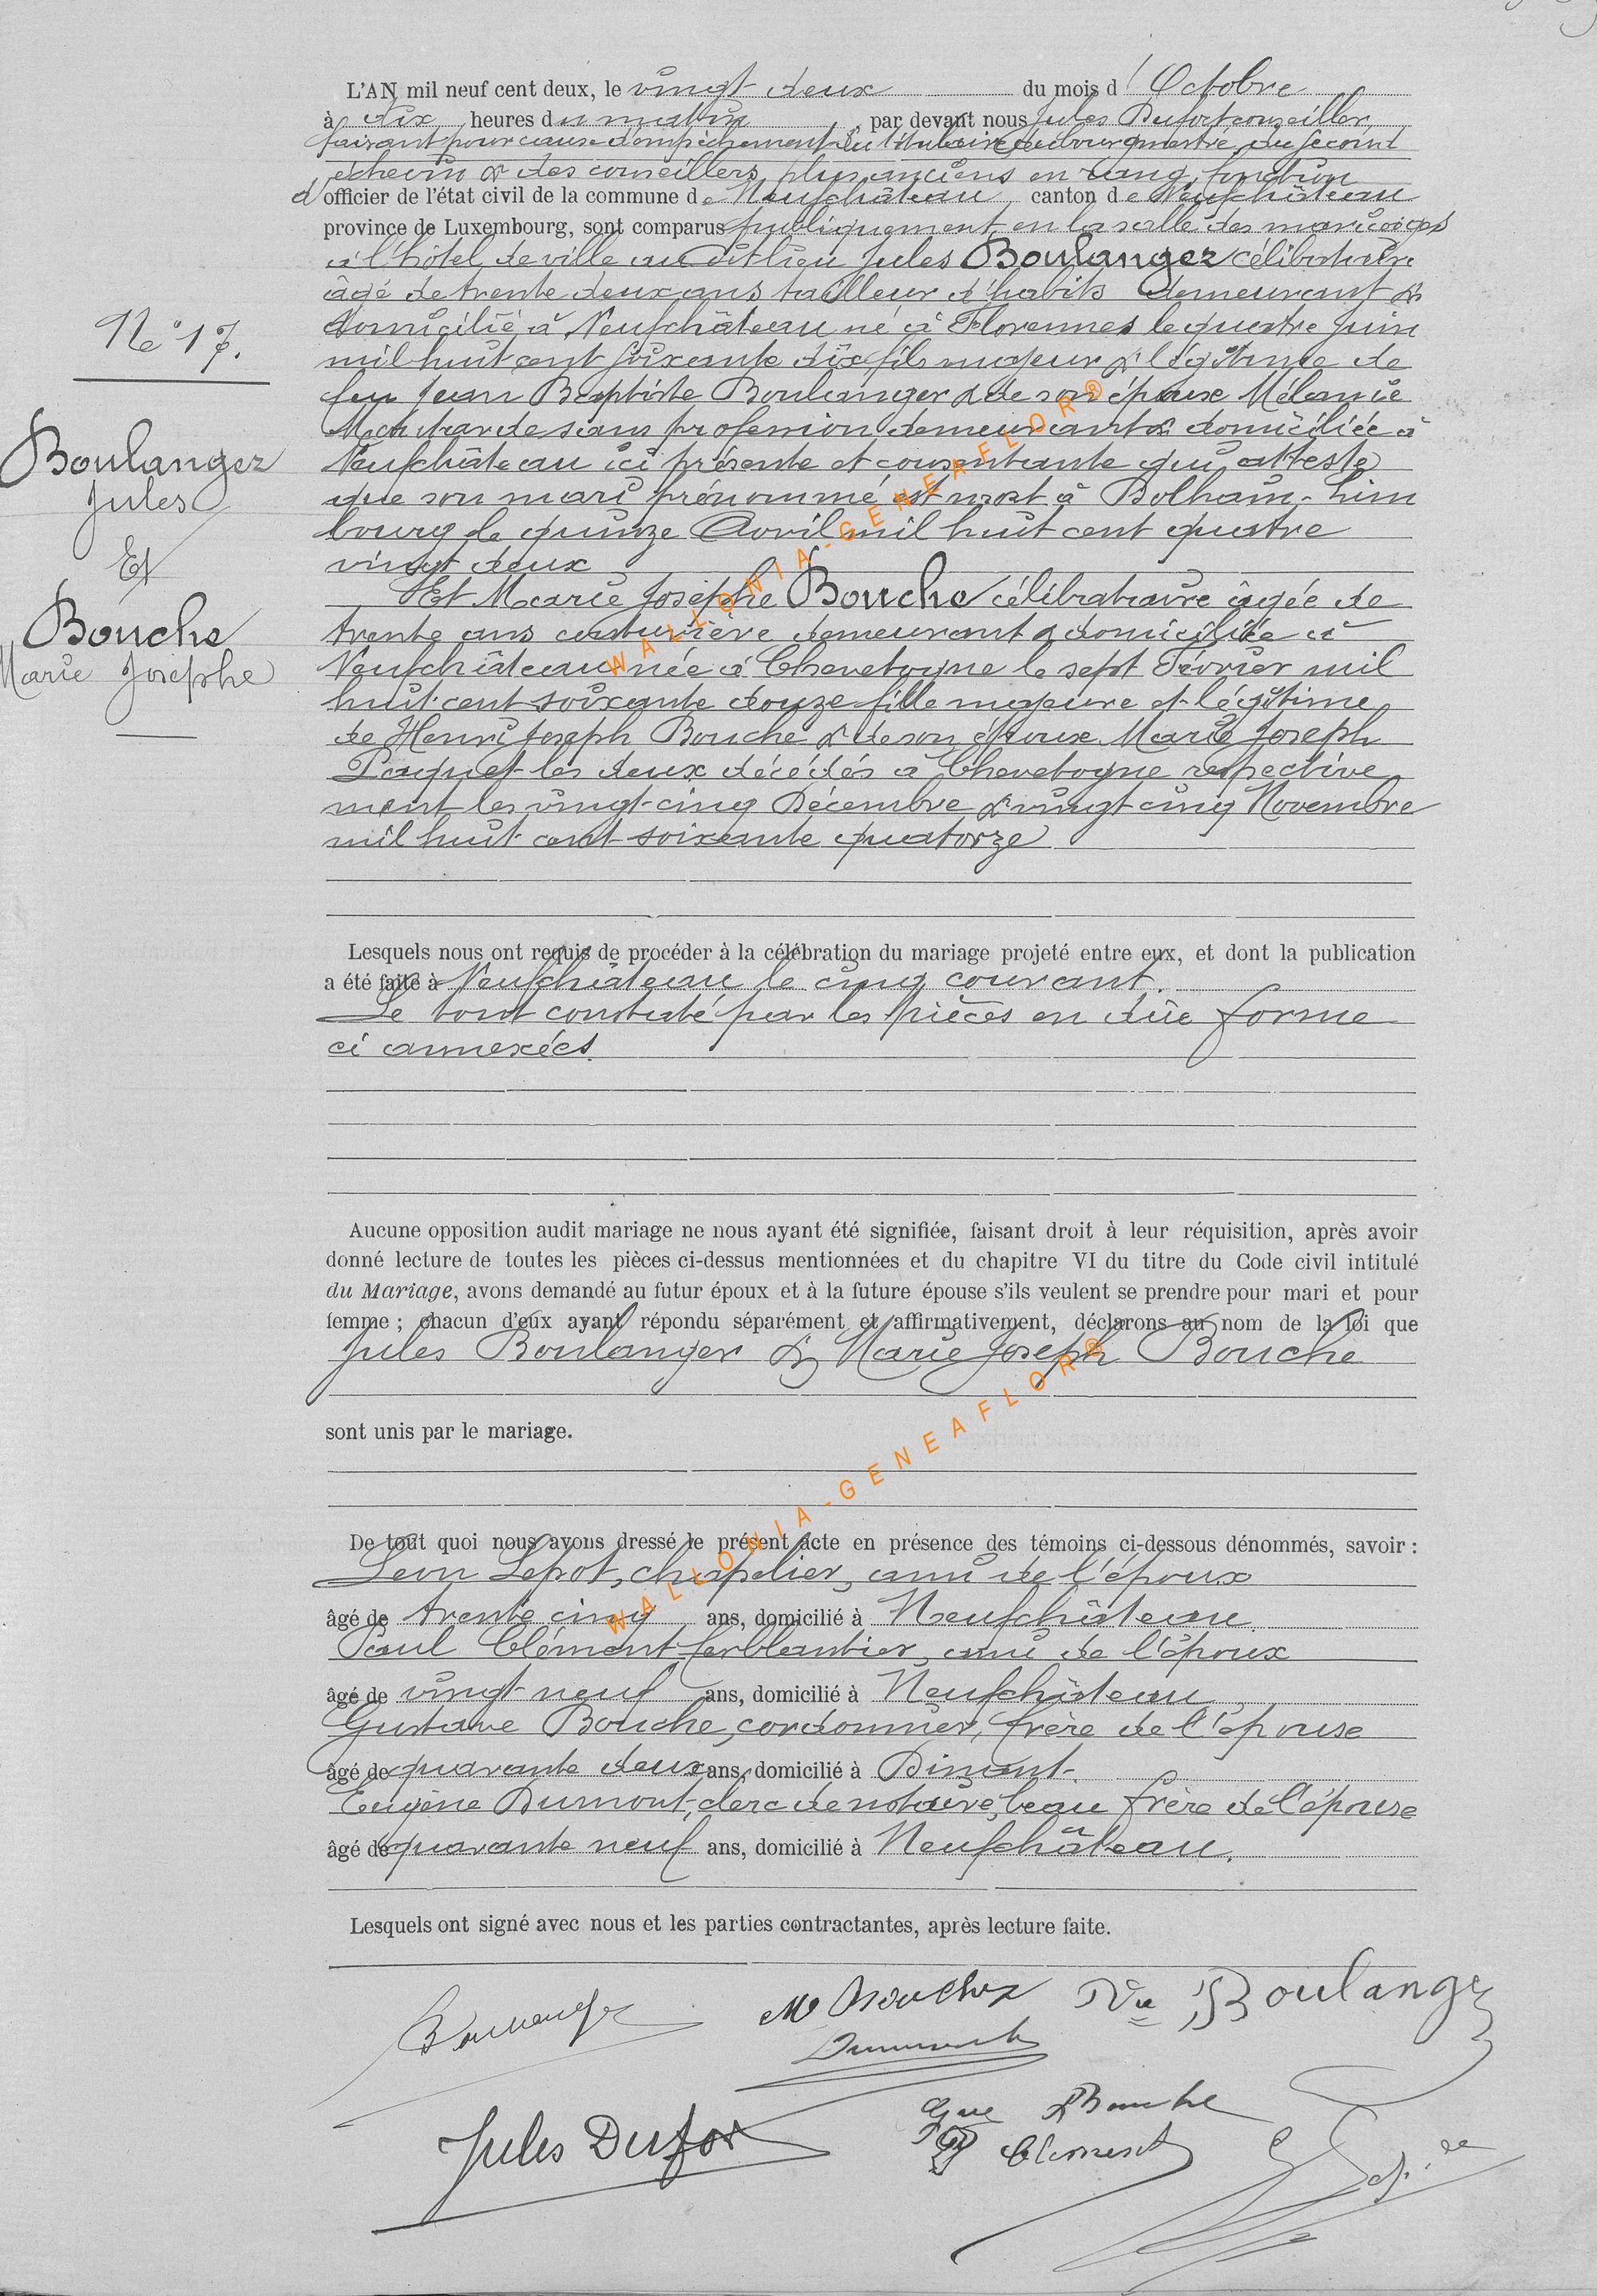 L'AN mil neuf cent deux, le vingt deux du mois d'Octobre
à dix heures du matin, par devant nous Jules Dufort conseiller,
faisant pour cause d'empêchement du titulaire du bourgmestre, du second
échevin & des conseillers plus anciens en rang, fonction
d'officier de l'état civil de la commune de Neufchâteau canton de Neufchâteau
province de Luxembourg, sont comparus publiquement en la salle des mariages
à l'hôtel de ville au dit lieu Jules Boulanger célibataire
âgé de trente deux ans tailleur d'habits demeurant &
domicilié à Neufchâteau né à Florennes le quatre Juin
mil huit cent soixante dix fils majeur & légitime de
feu Jean Baptiste Boulanger & de son épouse Mélanie
sans profession demeurant & domiciliée à
Neufchâteau ici présente et consentante qui atteste
que son mari prénommé est mort à Bolhain-Lim
bourg le quinze Avril mil huit cent quatre
vingt deux
Et Marie Josèphe Bouche célibataire âgée de
trente ans couturière demeurant & domiciliée à
Neufchâteau née à Chevetogne le sept Février mil
huit cent soixante douze fille majeure et légitime
de Henri Joseph Bouche & de son épouse Marie Joseph
Paquet les deux décédés à Chevetogne respective
ment les vingt-cinq Décembre & vingt cinq Novembre
mil huit cent soixante quatorze
No 17.
Boulanger
Jules
Et
Bouche
Marie Josephe
Lesquels nous ont requis de procéder à la célébration du mariage projeté entre eux, et dont la publication
a été faite à Neufchâteau le cinq courant.
Le tout constaté par les pièces en dûe forme
ci annexées.
Aucune opposition audit mariage ne nous ayant été signifiée, faisant droit à leur réquisition, après avoir
donné lecture de toutes les pièces ci-dessus mentionnées et du chapitre VI du titre du Code civil intitulé
du Mariage, avons demandé au futur époux et à la future épouse s'ils veulent se prendre pour mari et pour
femme ; chacun d'eux ayant répondu séparément et affirmativement, déclarons au nom de la loi que
Jules Boulanger & Marie Joseph Bouche
sont unis par le mariage.
De tout quoi nous avons dressé le présent acte en présence des témoins ci-dessous dénommés, savoir :
Léon Lepot, chapelier, ami de l'époux
âgé de trente cinq ans, domicilié à Neufchâteau.
Paul Clément ferblantier, ami de l'époux
âgé de vingt-neuf ans, domicilié à Neufchâteau
Gustave Bouche, cordonnier, frère de l'épouse
âgé de quarante deux ans, domicilié à Dinant.
Eugène Dumont, clerc de notaire, beau frère de l'épouse
âgé de quarante neuf ans, domicilié à Neufchâteau.
Lesquels ont signé avec nous et les parties contractantes, après lecture faite.
Boulanger M Bouche Vve Boulanger
Dumont
Jules Dufort Gve Bouche
P Clément
WALLONIA-GENEAFLOR®
WALLONIA-GENEAFLOR®